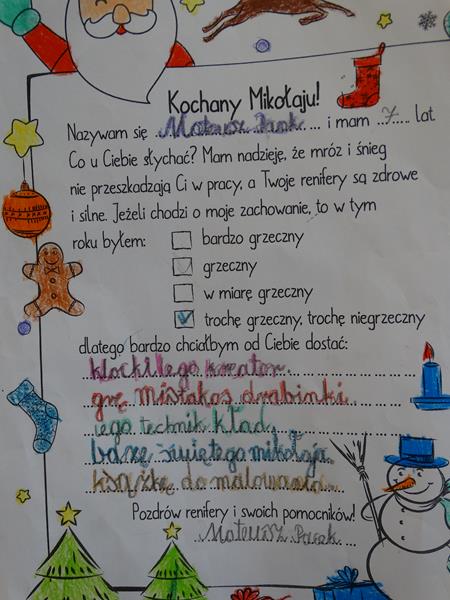 Kochany Mikołaju!
Nazywam się Mateusz i mam 7 lat
Co u Ciebie słychać? Mam nadzieję, że mróz i śnieg
nie przeszkadzają Ci w pracy, a Twoje renifery są zdrowe
i silne. Jeżeli chodzi o moje zachowanie, to w tym
roku byłem:
bardzo grzeczny
grzeczny
w miarę grzeczny
trochę grzeczny, trochę niegrzeczny
dlatego bardzo chciałbym od Ciebie dostać:
klocki lego kreator
grę mistakos drabinki
lego technik kład,
bazę świętego mikołaja.
książkę do malowania.
Pozdrów renifery i swoich pomocników!
Mateusz